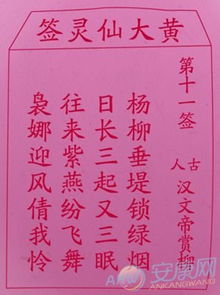 黄大仙灵签
第十一签
古人
汉文帝赏柳
杨柳垂堤锁绿烟
日长三起又三眠
往来紫燕纷飞舞
袅娜迎风倩我怜
安康网
ANKANGWANG